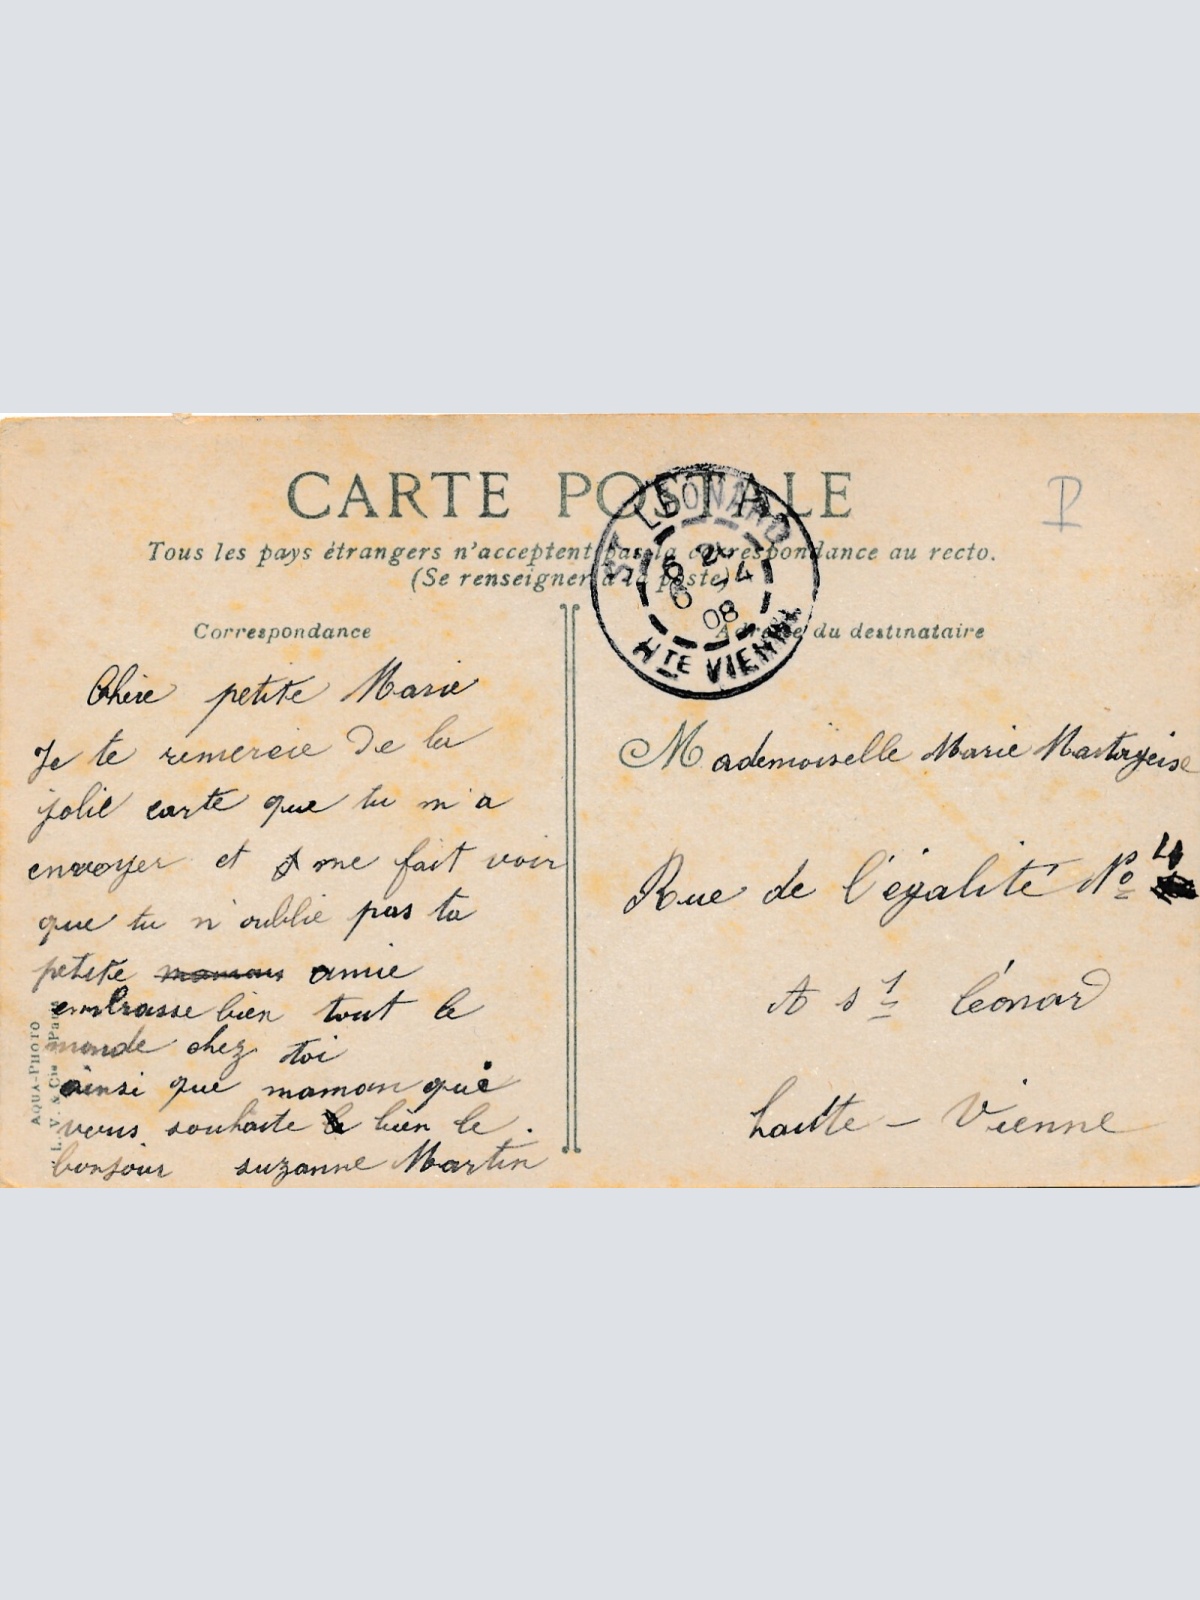 CARTE POSTALE
Tous les pays étrangers n'acceptent pas la correspondance au recto.
(Se renseigner à la poste)
P
ST LEONARD
6 4
08
HTE VIENNE
Correspondance
Chère petite Marie
Je te remercie De la
jolie carte que tu m'a
envoyer et me fait voir
que tu n'oublie pas ta
petite maman amie
embrasse bien tout le
monde chez toi
ainsi que maman qui
vous souhaite bien le .
bonjour suzanne Martin
AQUA-PHOTO
L. V. & Cie Paris
Adresse du destinataire
Mademoiselle Marie
Rue de l'égalité No 4
A st léonard
haute - Vienne